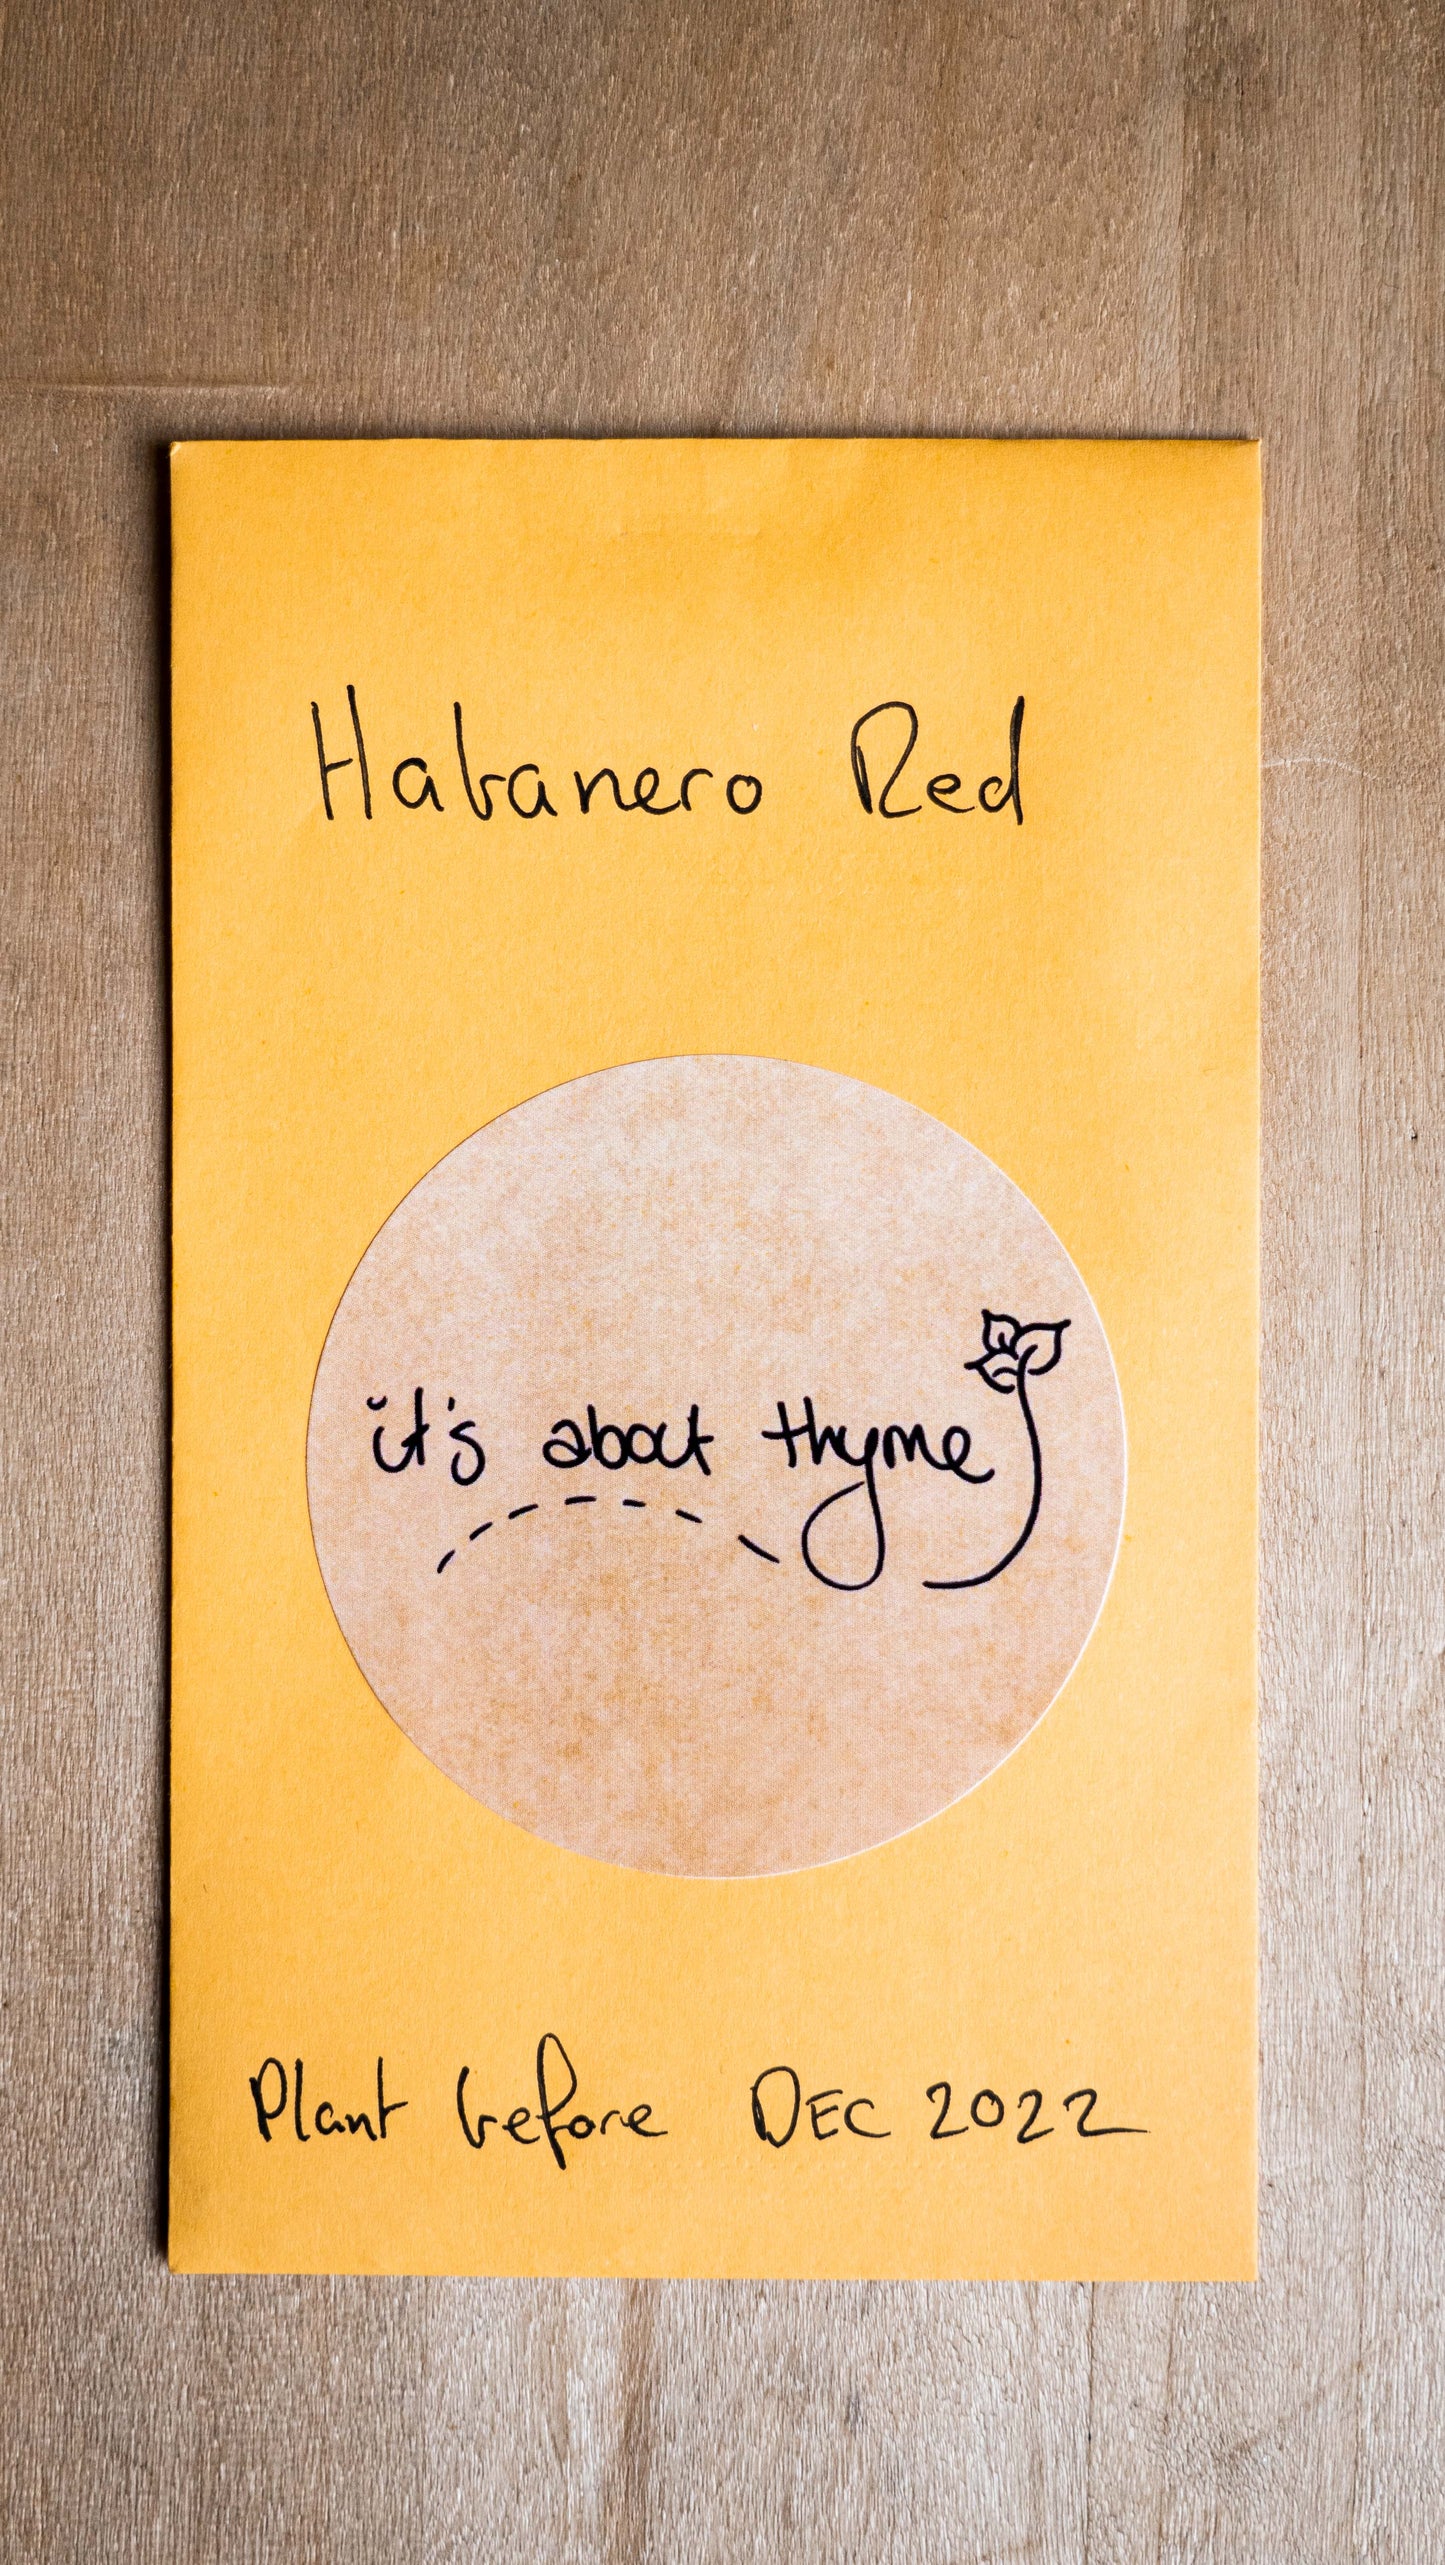 Habanero Red
it's about thyme
Plant before DEC 2022